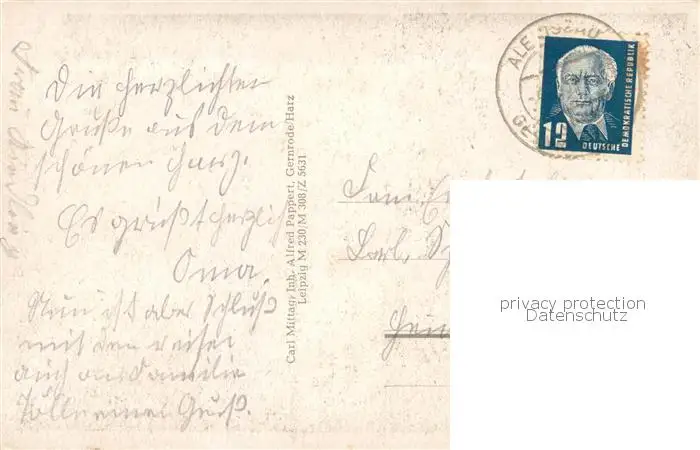 Die herzlichsten
Grüße aus dem
schönen Harz.
Es grüßt herzlich
Oma.
Nun ist aber Schluß
mit den reisen
auch an Familie
einen Gruß.
Carl Mittag, Inh. Alfred Pappert, Gernrode/Harz
Leipzig M 230/M 308/Z 5631
ALE
GE
12
DEUTSCHE
DEMOKRATISCHE REPUBLIK
Fam.
Karl
privacy protection
Datenschutz